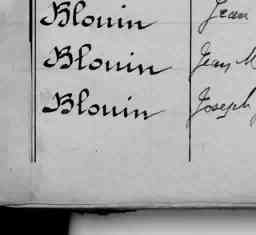 Blouin Jean
Blouin Jean M
Blouin Joseph